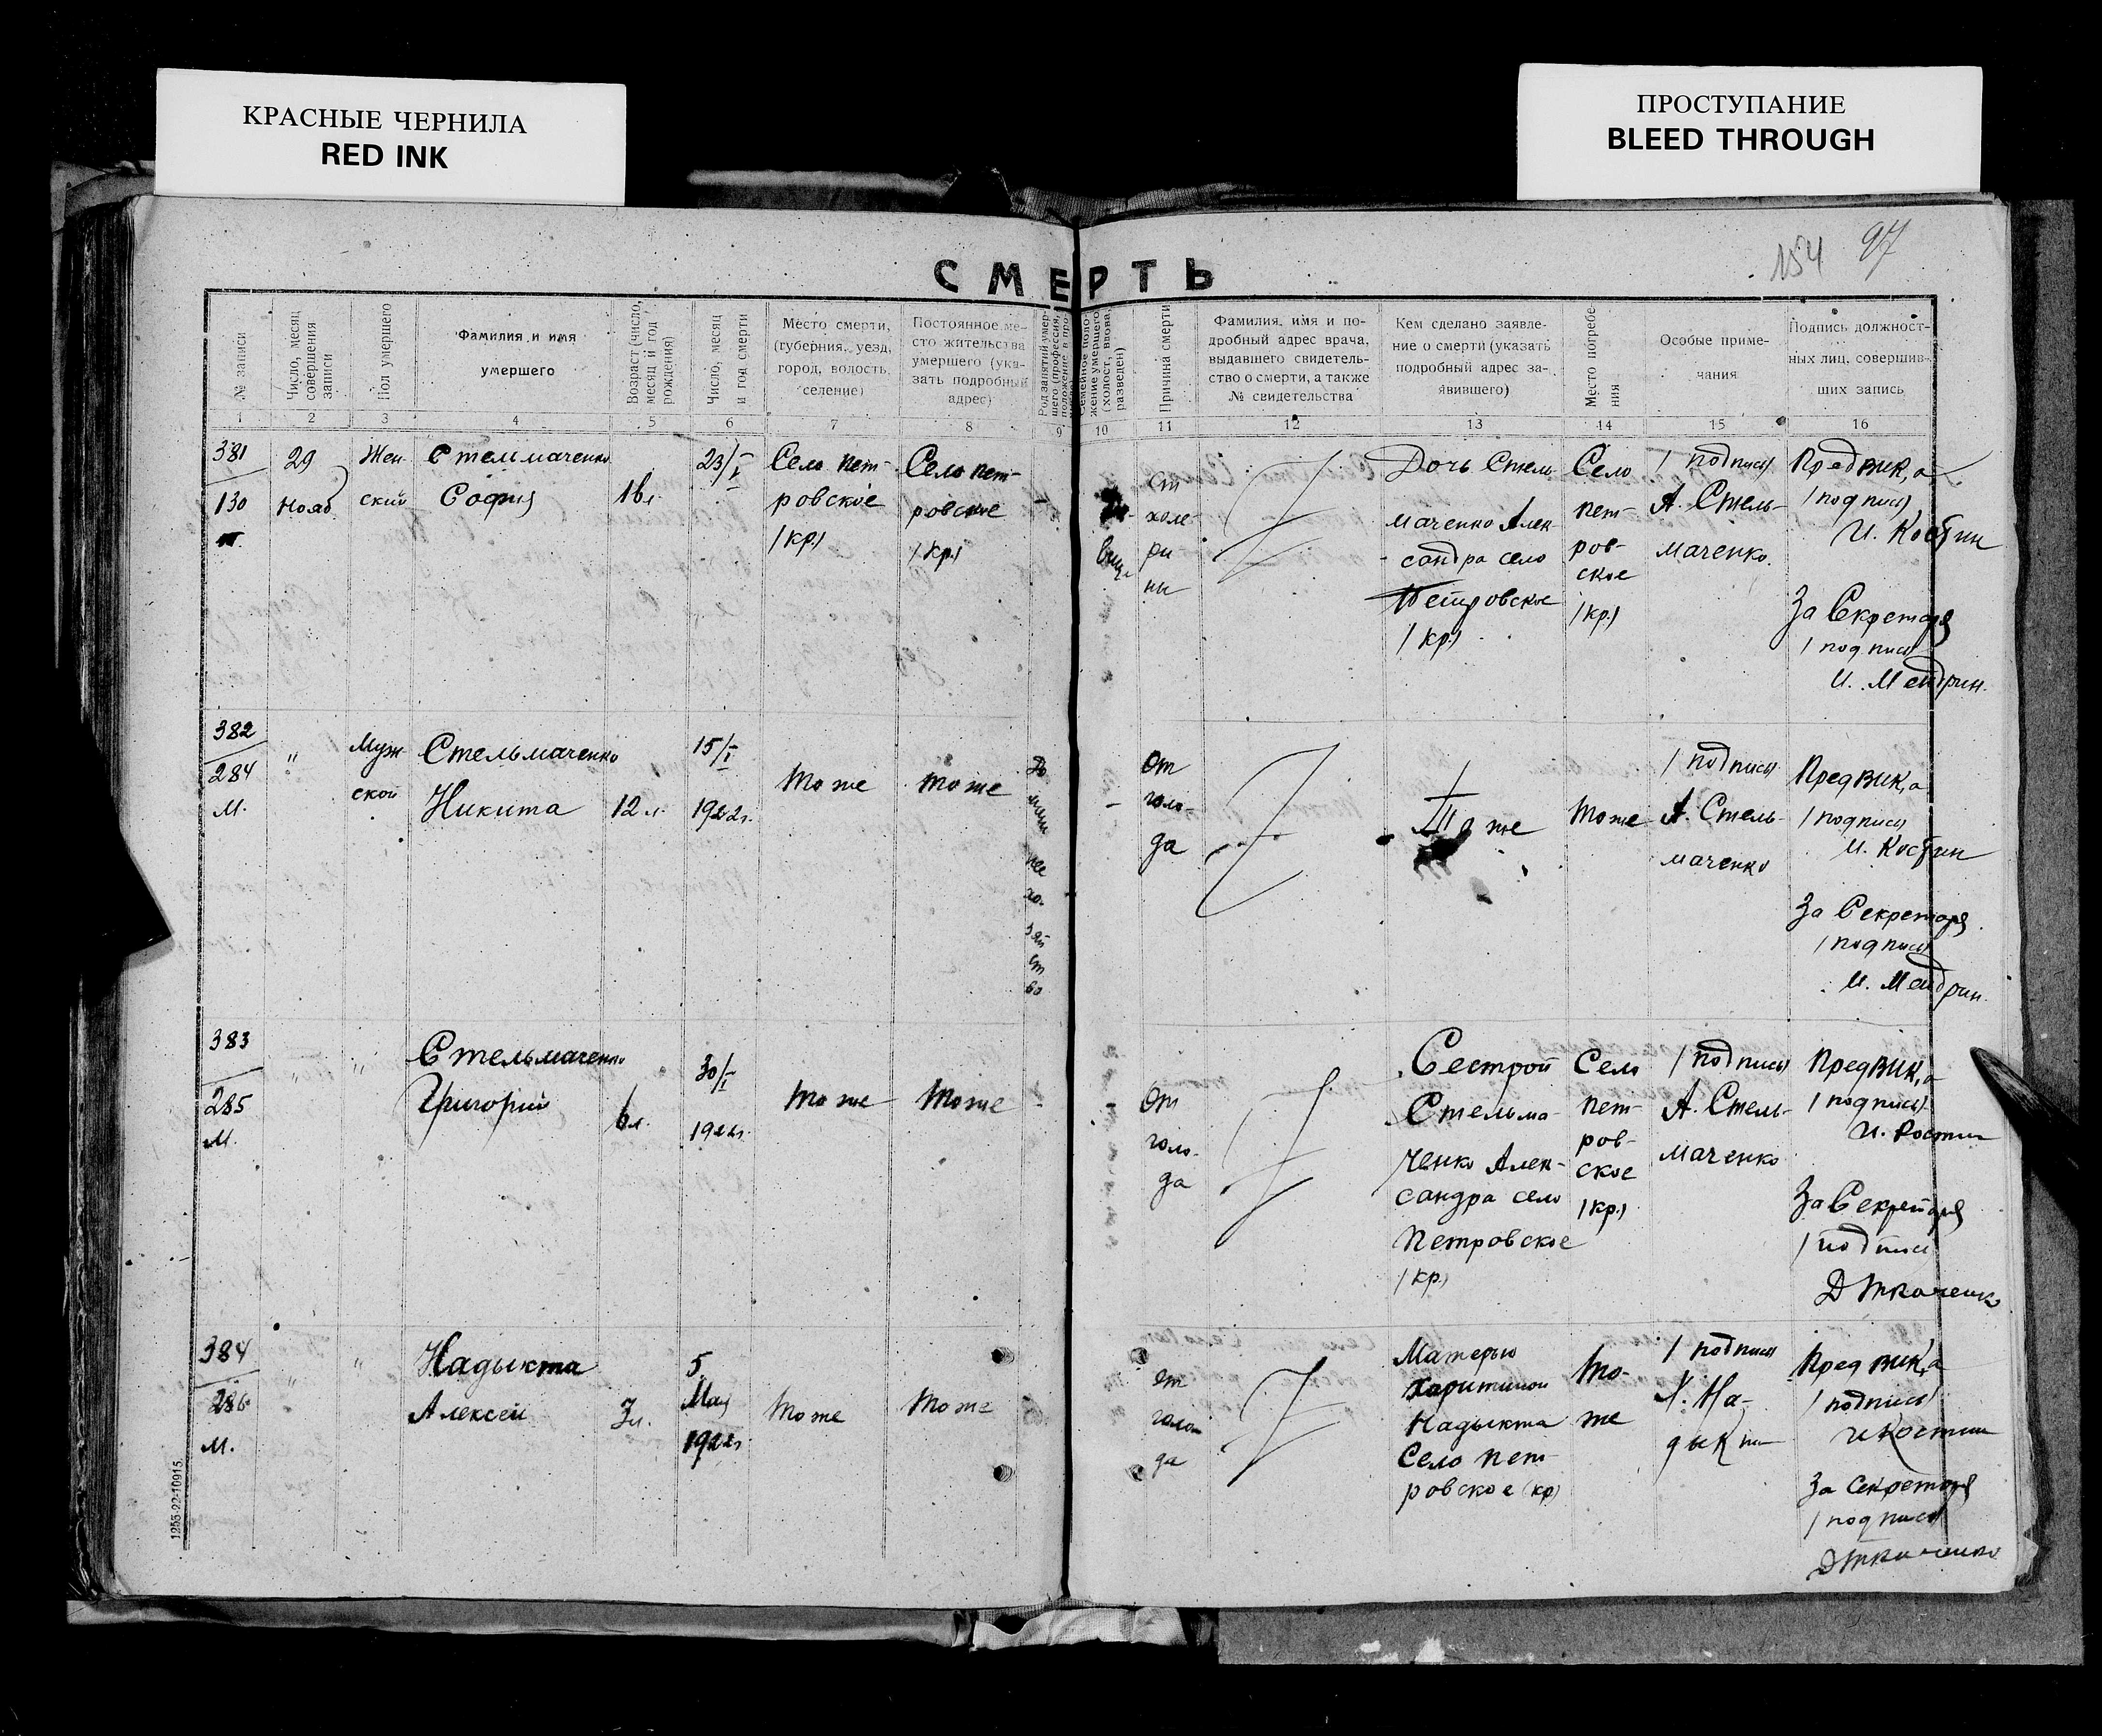 КРАСНЫЕ ЧЕРНИЛА
RED INK
ПРОСТУПАНИЕ
BLEED THROUGH
154 97
СМЕРТЬ
№ записи
Число, месяц совершения записи
Пол умершего
Фамилия и имя
умершего
Возраст (число, месяц и год рождения)
Число, месяц и год смерти
Место смерти,
(губерния, уезд,
город, волость,
селение)
Постоянное ме-
сто жительства
умершего (ука-
зать подробный
адрес)
Род занятий умер-
шего (профессия,
положение в про-
Семейное поло-
жение умершего
(холост, вдова,
разведен)
Причина смерти
Фамилия, имя и по-
дробный адрес врача,
выдавшего свидетель-
ство о смерти, а также
№ свидетельства
Кем сделано заявле-
ние о смерти (указать
подробный адрес за-
явившего)
Место погребе-
ния
Особые приме-
чания
Подпись должност-
ных лиц, совершив-
ших запись
1 2 3 4 5 6 7 8 9 10 11 12 13 14 15 16
381
130
29
Нояб
Жен
ский
Стельмаченко
София
23/I
Село Пет-
ровское
/кр./
Село Пет-
ровское
/кр./
От
холе-
ри
ны
Дочь Стель
маченко Алек
сандра село
Петровское
/кр./
Село
Пет-
ров-
ское
/кр./
/подпись/
А. Стель-
маченко.
ПредВИК,а
/подпись/
И. Костин
За Секретаря
/подпись/
И. Мендрин.
382
284
м.
"
Муж
ской
Стельмаченко
Никита
12 л.
15/I
1922г.
то же
то же
До
маш
нее
хо-
зяй
ст
во
-
От
голо-
да
То же
то же
/подпись/
А. Стель-
маченко
ПредВИК,а
/подпись/
И. Костин
За Секретаря
/подпись/
И. Мендрин.
383
285
м.
"
"
Стельмаченко
Григорий
6 л.
30/I
1922г.
то же
то же
-
-
От
голо-
да
Сестрой
Стельма-
ченко Алек-
сандра село
Петровское
/кр./
Село
Пет-
ров-
ское
/кр./
/подпись/
А. Стель-
маченко
ПредВИК,а
/подпись/
И. Костин
За Секретаря
/подпись/
Д Ткаченко
384
286
м.
"
"
Надыкта
Алексей
3 л.
5
Мая
1922г
то же
то же
от
голо-
да
Матерью
Харитиной
Надыкта
Село Пет-
ровское /кр/
то-
же
/подпись/
Х. На-
дыкта
ПредВИК,а
/подпись/
И Костин
За Секретаря
/подпись/
Д Ткаченко
1255-22-10915.